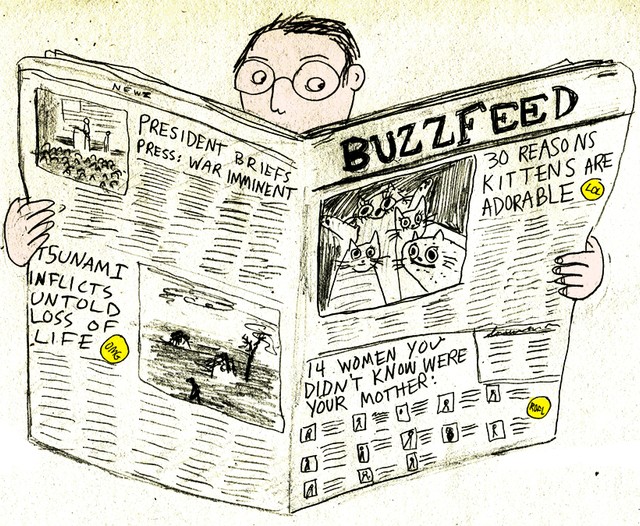 NEWS
PRESIDENT BRIEFS
PRESS: WAR IMMINENT
TSUNAMI
INFLICTS
UNTOLD
LOSS OF
LIFE
OMG
BUZZFEED
30 REASONS
KITTENS ARE
ADORABLE
LOL
14 WOMEN YOU
DIDN'T KNOW WERE
YOUR MOTHER: